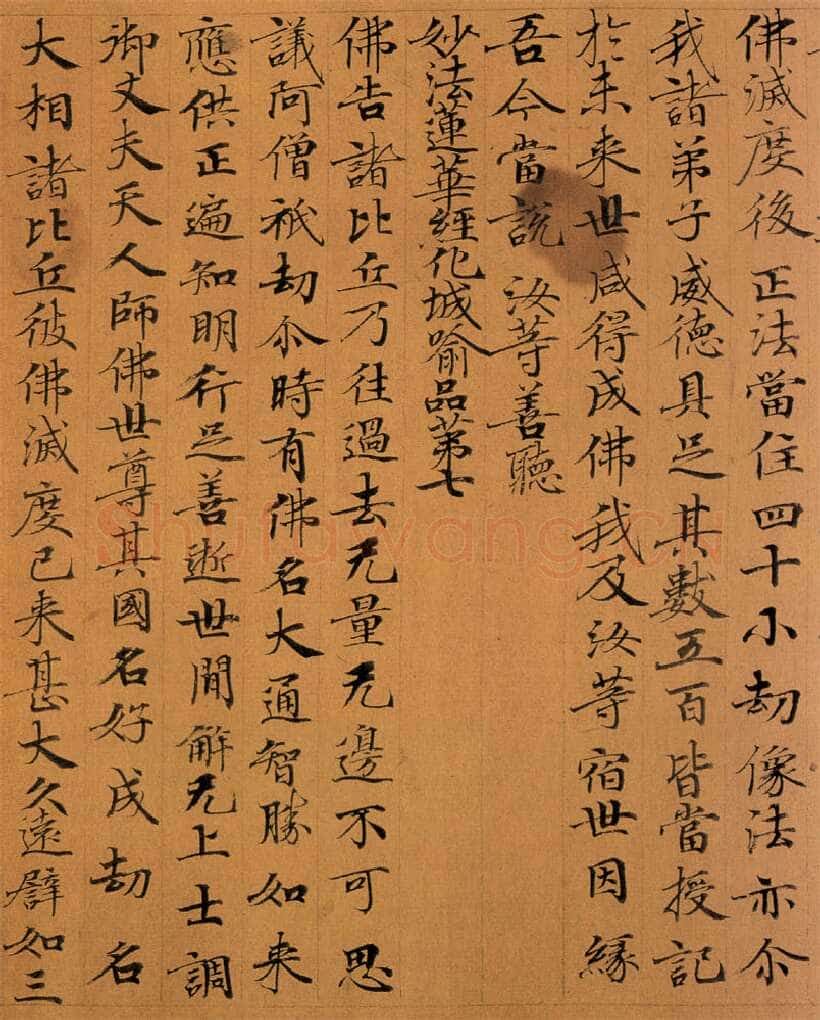 佛滅度後正法當住四十小劫像法亦尒
我諸弟子威德具足其數五百皆當授記
於未来世咸得成佛我及汝䓁宿世因緣
吾今當説汝䓁善聽
妙法蓮華經化城喻品苐七
佛告諸比丘乃往過去无量无邊不可思
議阿僧祇劫尒時有佛名大通智勝如来
應供正遍知明行足善逝世間解无上士調
御丈夫天人師佛世尊其國名好成劫名
大相諸比丘彼佛滅度已来甚大久遠譬如三
Shufawang.CN